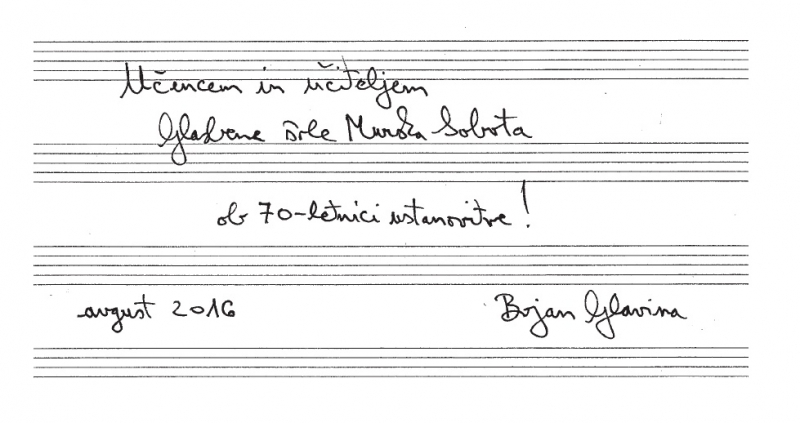 Učencem in učiteljem
Glasbene šole Murska Sobota
ob 70-letnici ustanovitve!
avgust 2016 Bojan Glavina